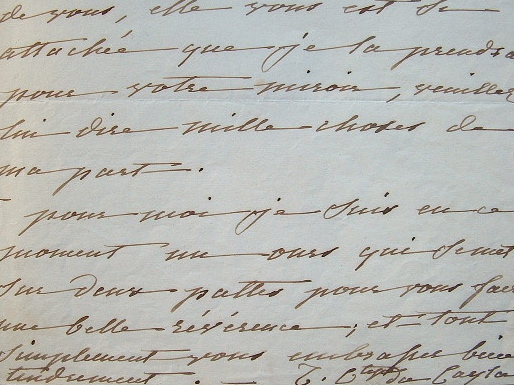 de vous, elle vous est si
attachée que je la prends
pour votre miroir, veuillez
lui dire mille choses de
ma part.
pour moi je suis en ce
moment un ours qui se met
sur deux pattes pour vous faire
une belle révérence, et tout
simplement vous embrasser bien
tendrement. Z. Ctesse de Cayla